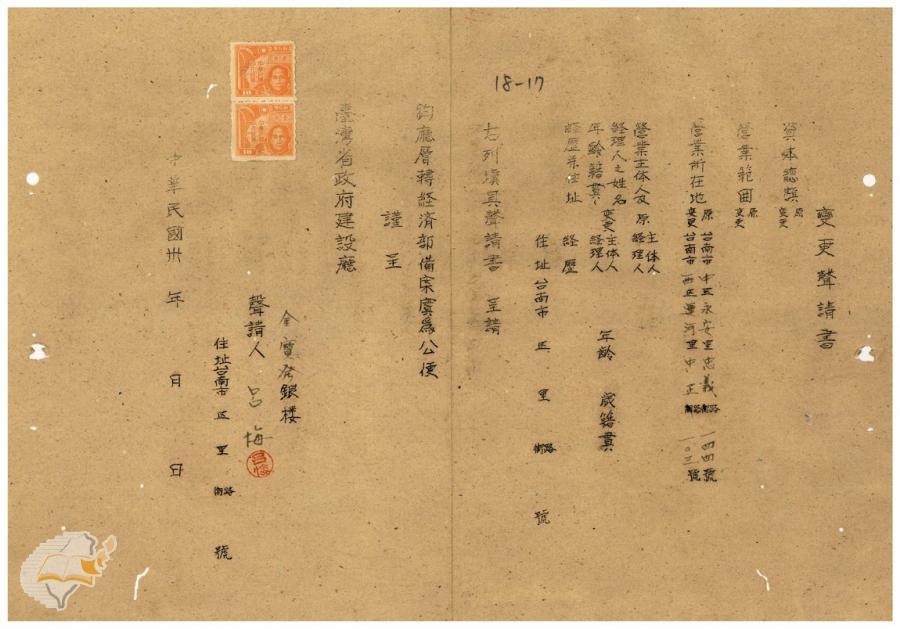 18-17
變更聲請書
資本總額 原 變更
營業範囲 原 變更
營業所在地 原 台南市 中区 永安里 忠義 街路 一四四號
變更 台南市 西区 運河里 中正 街路 一〇三號
營業主体人及 原 主体人 經理人
經理人之姓名 變更 主体人 經理人 年齡 歲 籍貫
年齡籍貫
經歷並住址 經歷
住址 台南市 区 里 街路 號
右列填具聲請書 呈請
鈞廳層轉経済部備案實爲公便
謹呈
臺灣省政府建設廳
金寶發銀楼
聲請人 呂梅
呂梅
住址 台南市 区 里 街路 號
中華民國卅 年 月 日
10
10